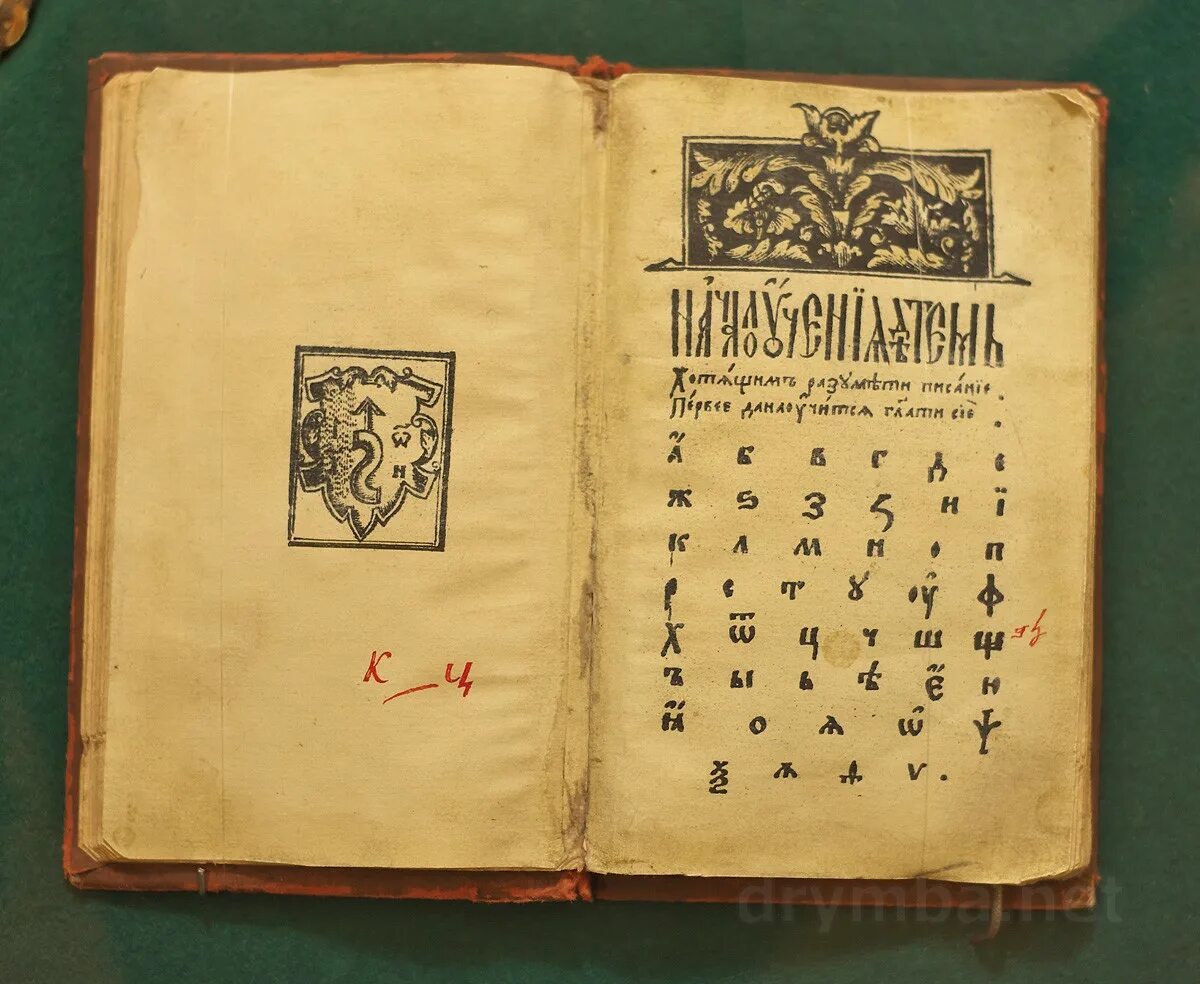 Ѡ҃
Н
К _ Ц
НАЧАЛО ОУЧЕНІѦ ДѢТЕМЬ
Хотѧ́щимъ разꙋмѣ́ти писа́нїе.
Пе́рвее да наоу́чи́тсѧ гл҃ати сїѐ.
А҆́ б в г д є
ж ѕ з ҁ и ї
к л м н о п
р с т ꙋ оу҆ ф
х ѿ ц ч ш щ
ъ ы ь ѣ є҆́ н
и҆́ о ѧ ѡ҆ ѱ
ѯ ѫ ѧ ѵ.
drymba.net